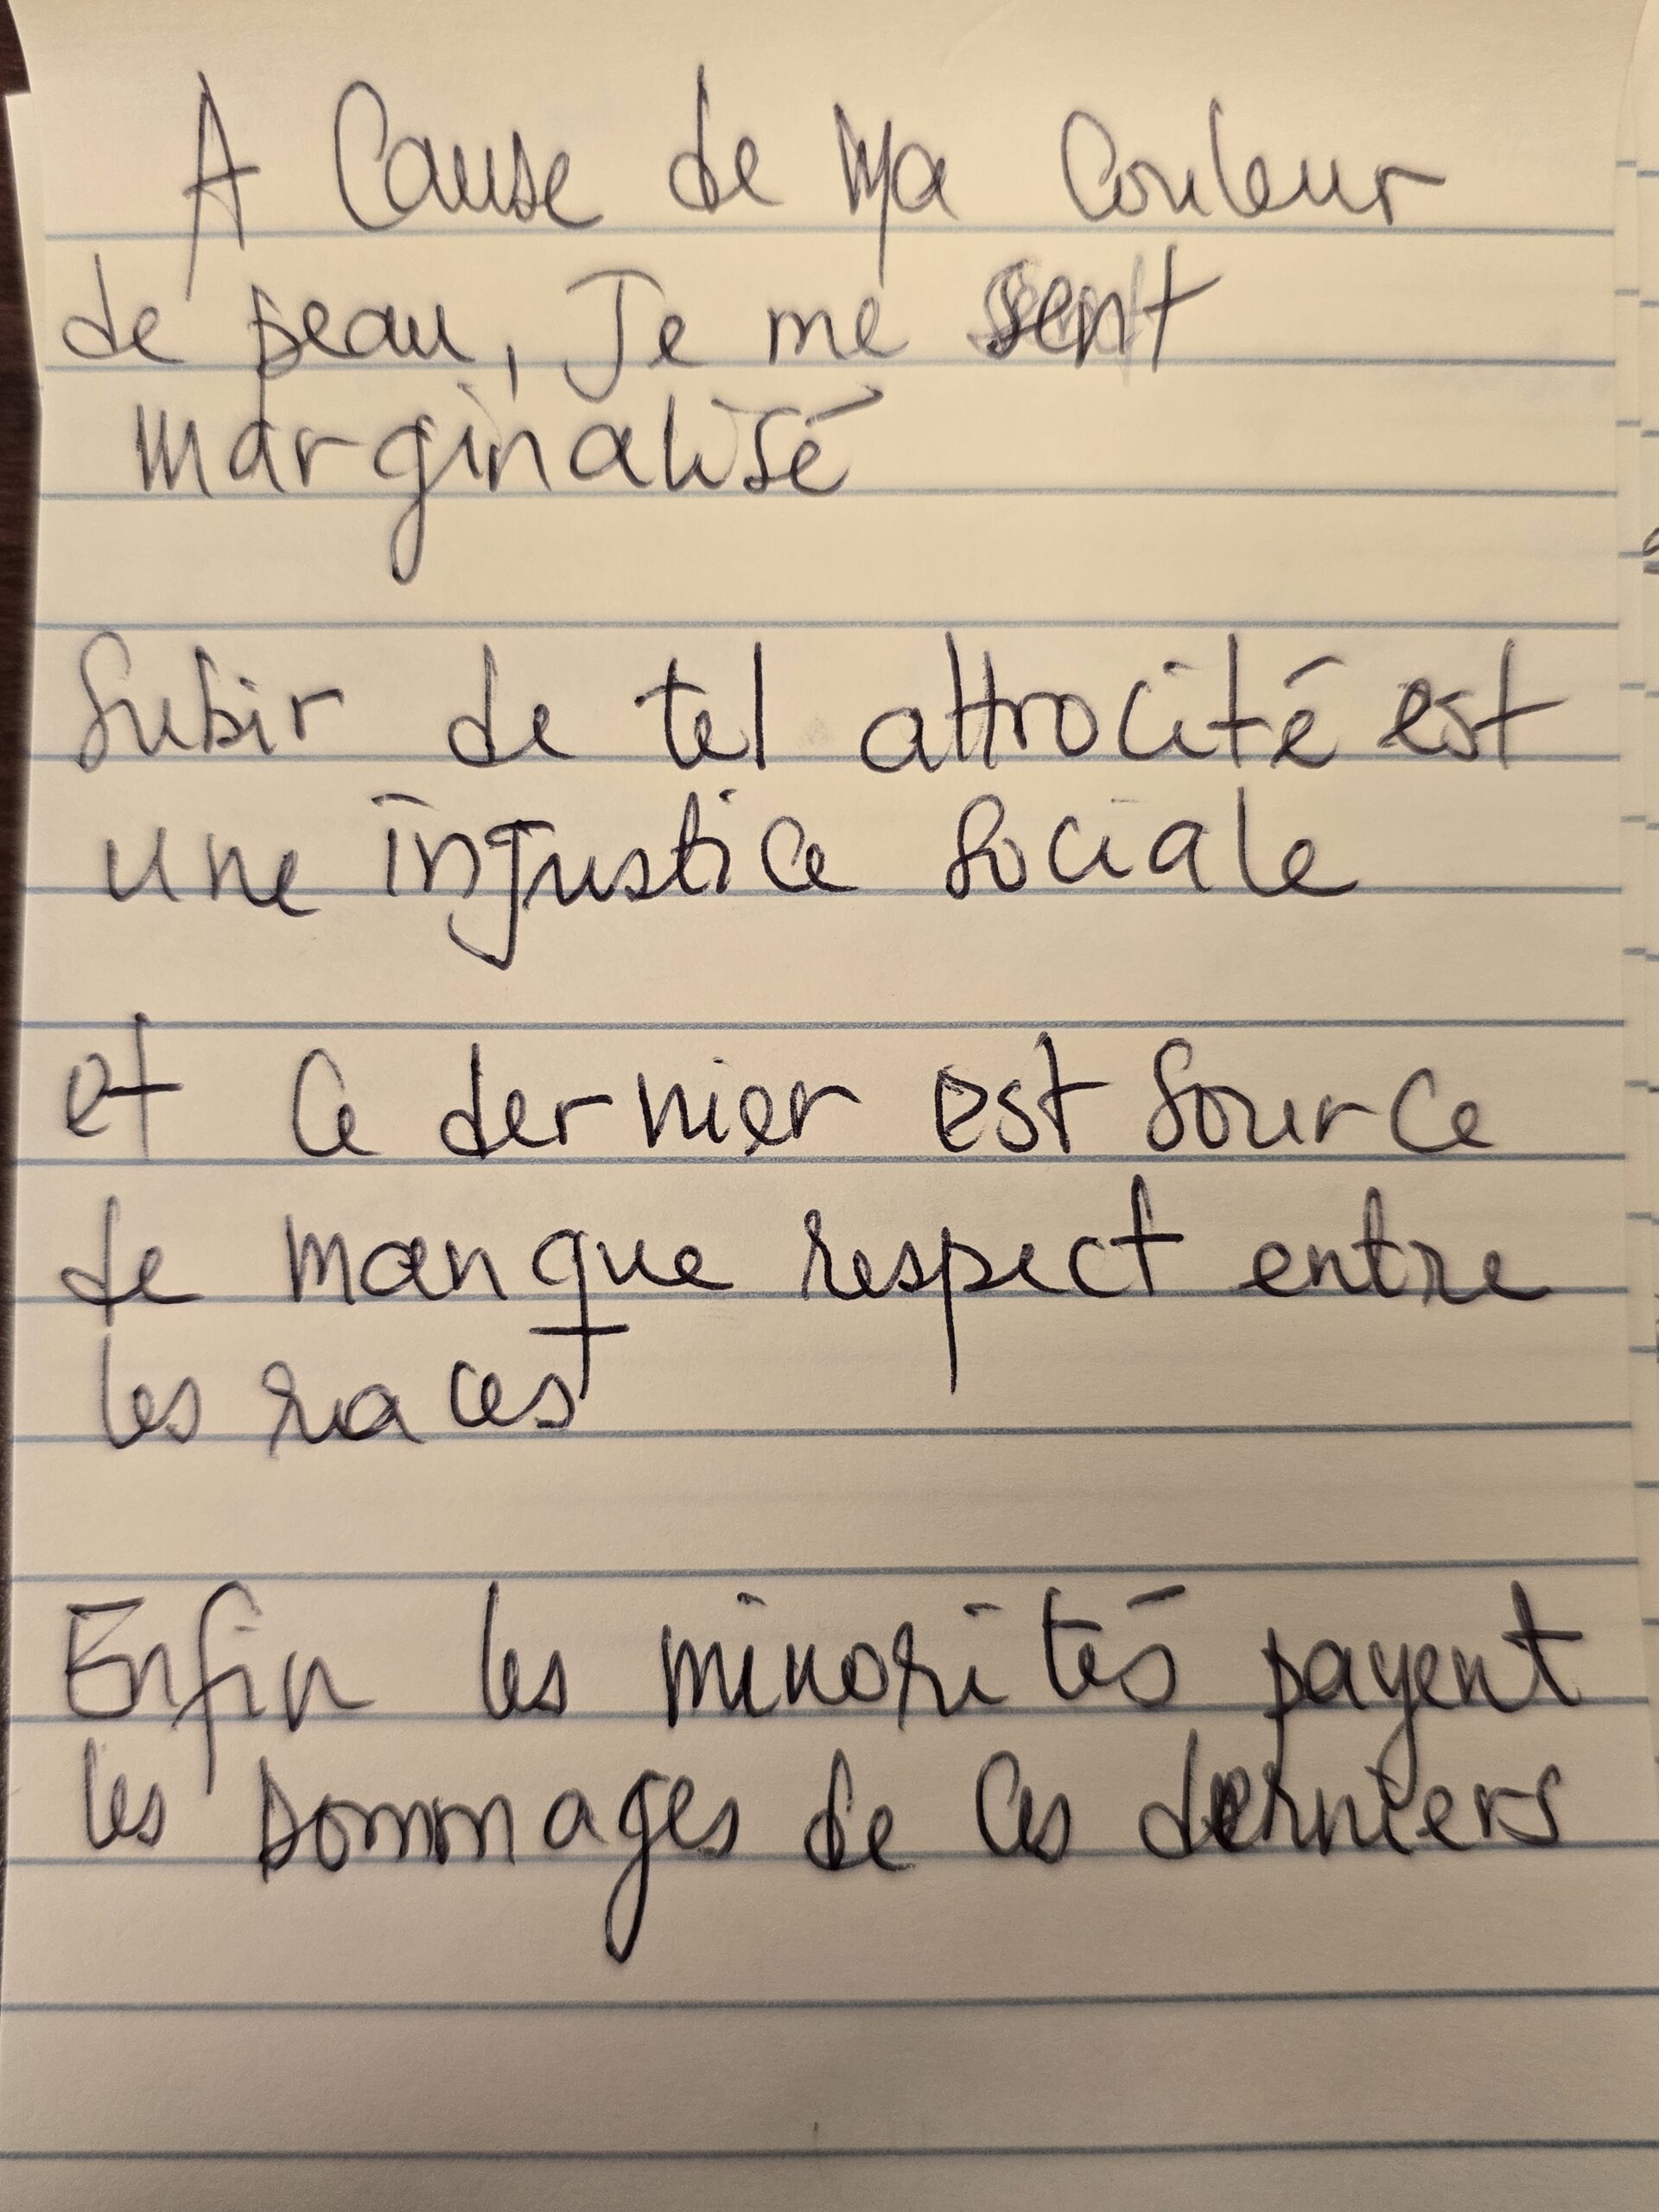 A cause de ma couleur
de peau, Je me sent
marginalisé
Subir de tel attrocité est
une injustice sociale
et ce dernier est source
de manque respect entre
les races
Enfin les minorités payent
les dommages de ces derniers